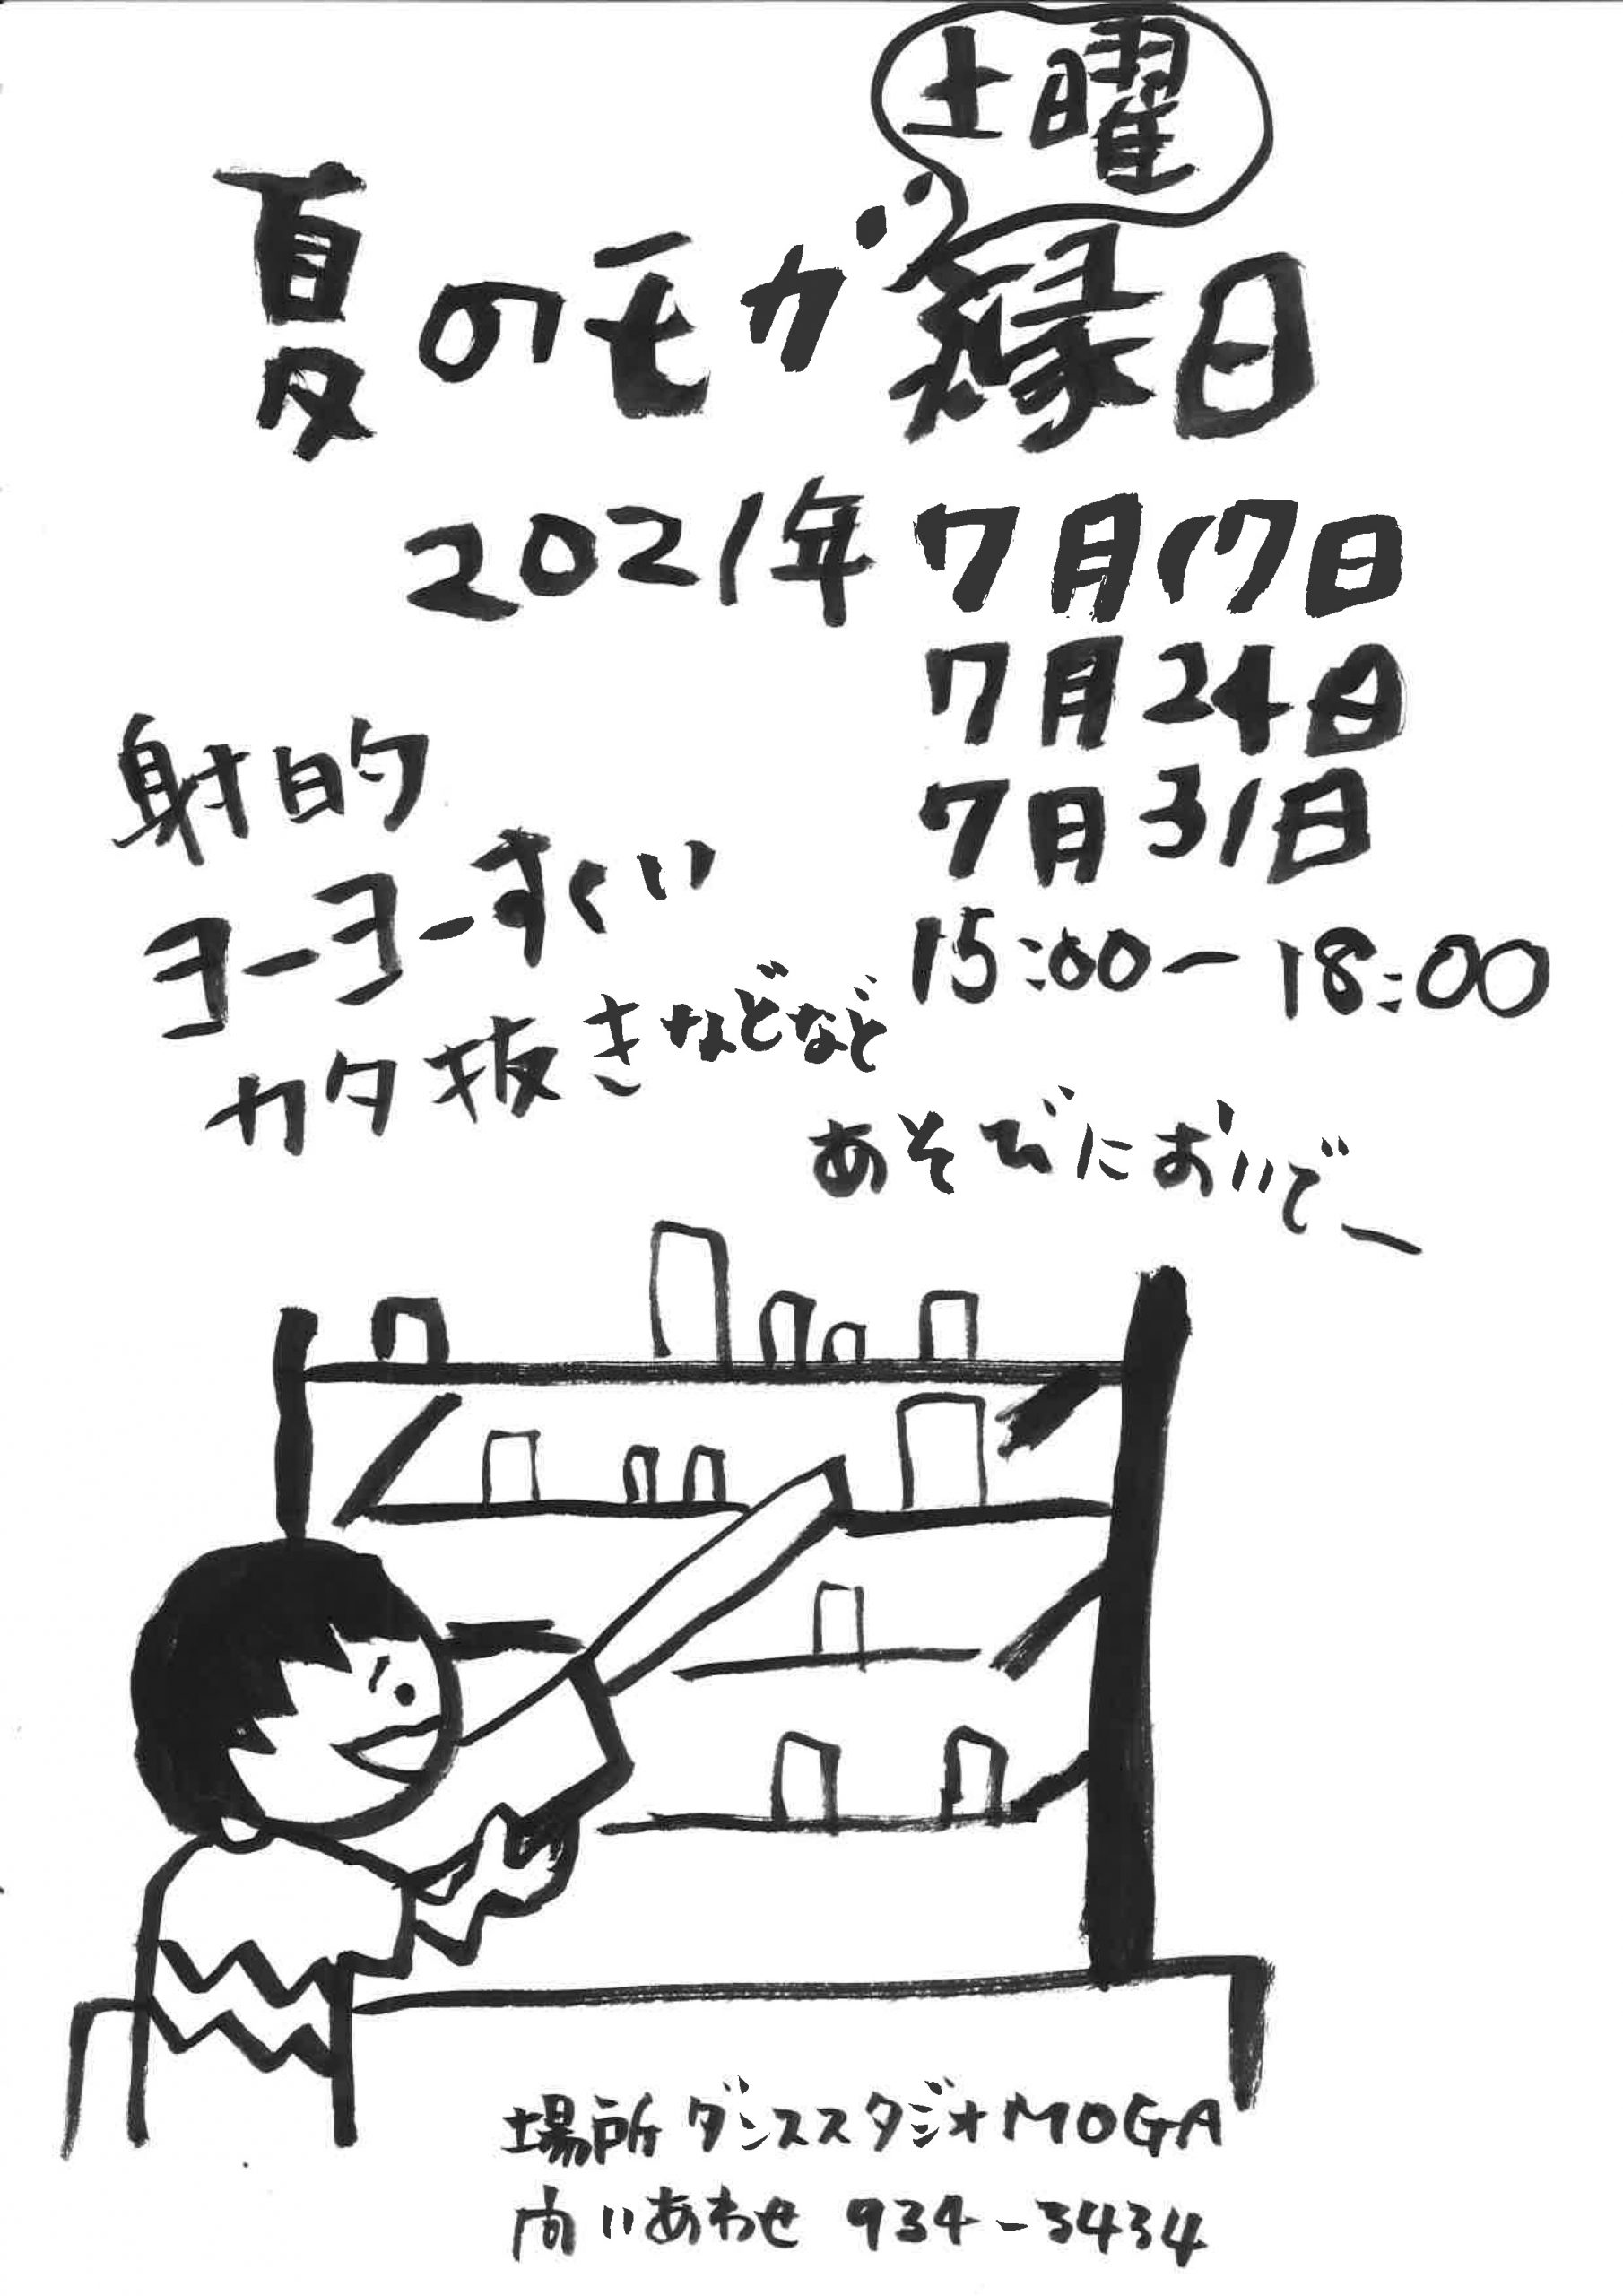 土曜
夏のモガ縁日
2021年 7月17日
7月24日
7月31日
15:00ー18:00
射的
ヨーヨーすくい
カタ抜きなどなど
あそびにおいでー
場所 ダンススタジオMOGA
問いあわせ 934-3434